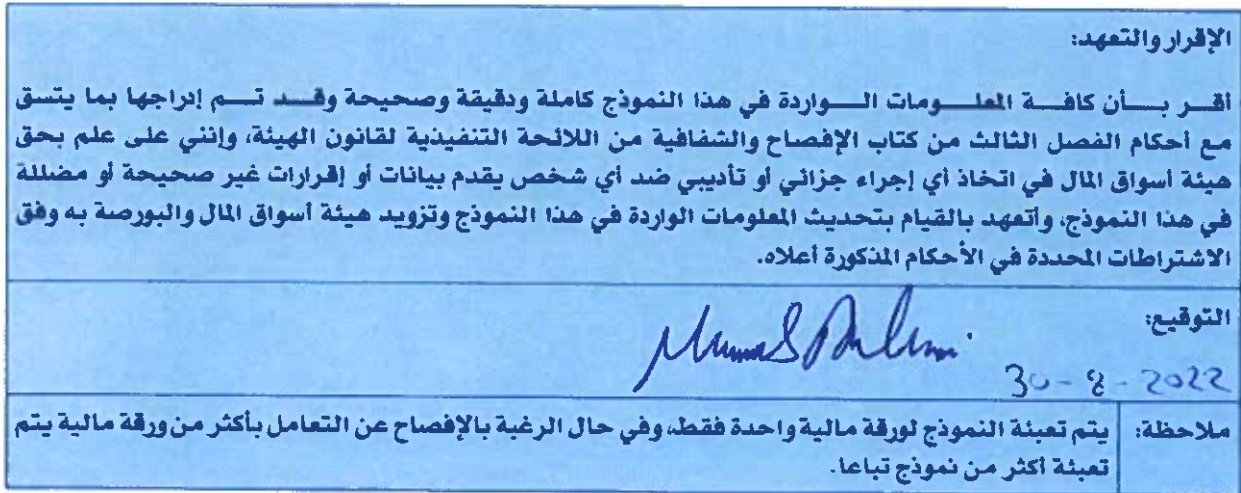 الإقرار والتعهد:
أقر بأن كافة المعلومات الواردة في هذا النموذج كاملة ودقيقة وصحيحة وقد تم إدراجها بما يتسق
مع أحكام الفصل الثالث من كتاب الإفصاح والشفافية من اللائحة التنفيذية لقانون الهيئة، وإنني على علم بحق
هيئة أسواق المال في اتخاذ أي إجراء جزائي أو تأديبي ضد أي شخص يقدم بيانات أو إقرارات غير صحيحة أو مضللة
في هذا النموذج، وأتعهد بالقيام بتحديث المعلومات الواردة في هذا النموذج وتزويد هيئة أسواق المال والبورصة به وفق
الاشتراطات المحددة في الأحكام المذكورة أعلاه.
التوقيع:
30-8-2022
ملاحظة: يتم تعبئة النموذج لورقة مالية واحدة فقط، وفي حال الرغبة بالإفصاح عن التعامل بأكثر من ورقة مالية يتم
تعبئة أكثر من نموذج تباعا.